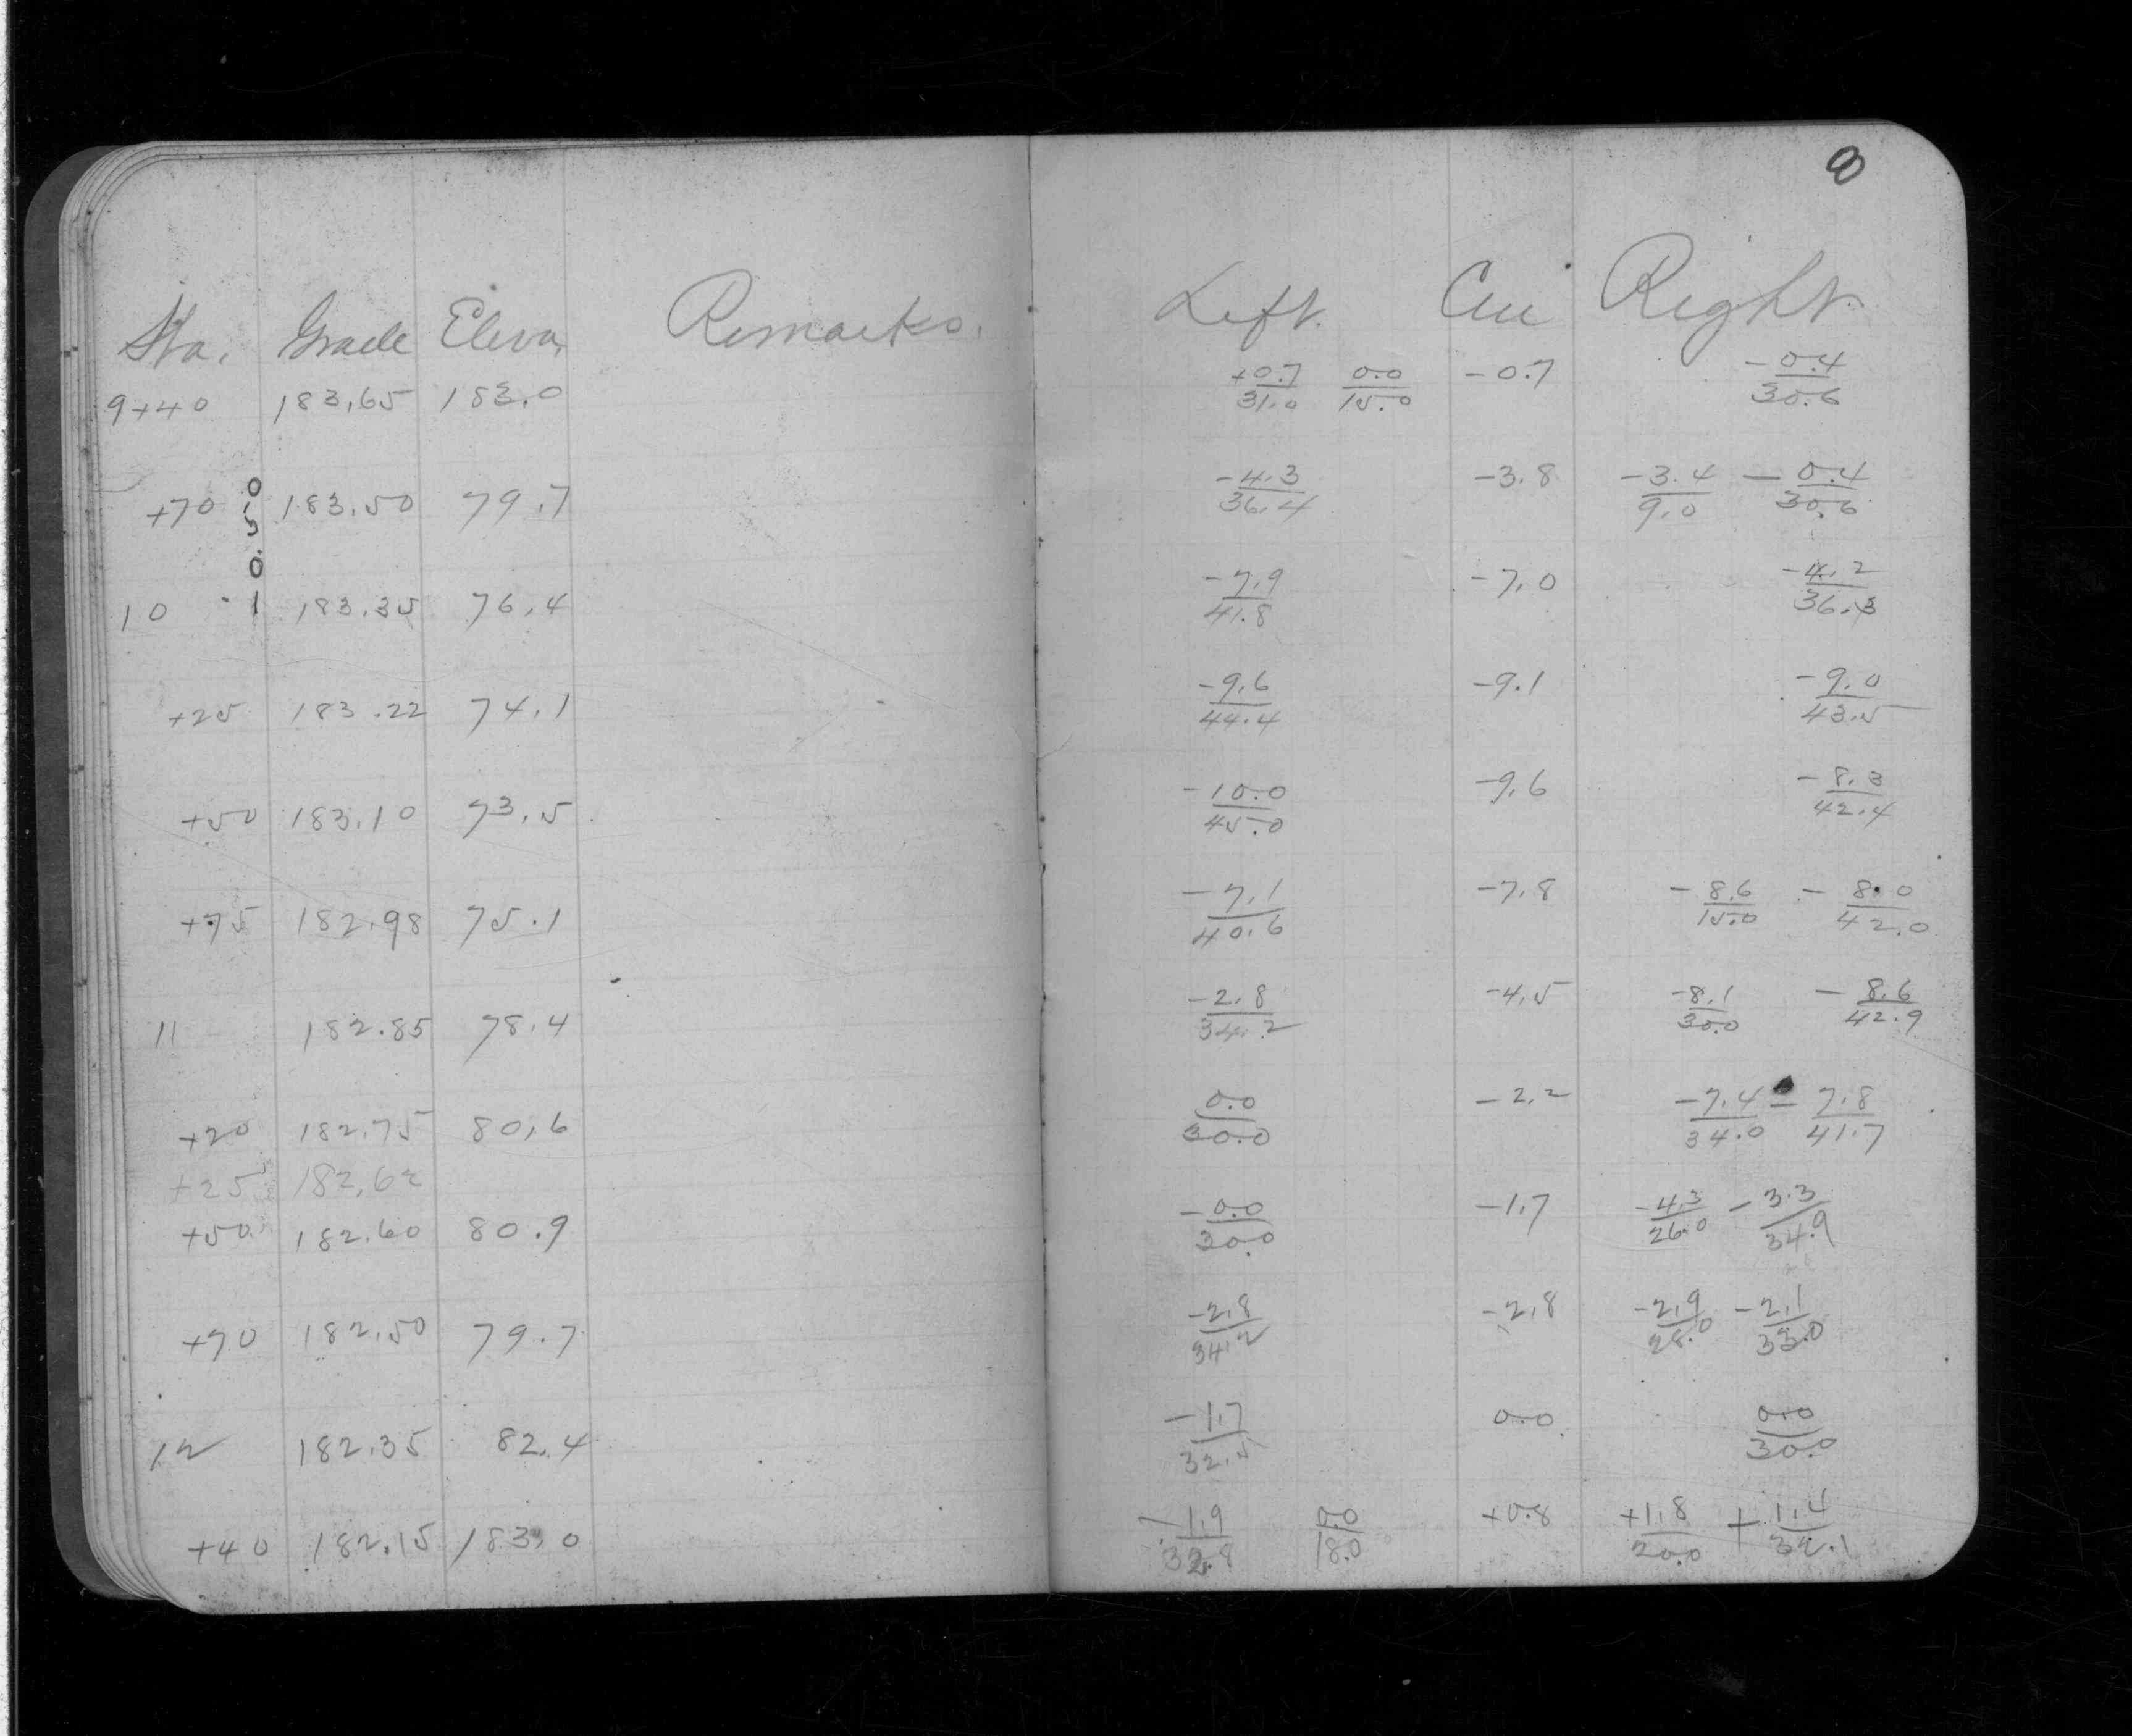 8
Sta. Grade Eleva, Remarks. Left. Cen Right.
9+40 183.65 183.0 +0.7/31.0 0.0/15.0 -0.7 -0.4/30.6
+70 183.50 79.7 -4.3/36.4 -3.8 -3.4/9.0 -0.4/30.6
-0.50
10 183.35 76.4 -7.9/41.8 -7.0 -4.2/36.3
+25 183.22 74.1 -9.6/44.4 -9.1 -9.0/43.5
+50 183.10 73.5 -10.0/45.0 -9.6 -8.3/42.4
+75 182.98 75.1 -7.1/40.6 -7.8 -8.6/15.0 -8.0/42.0
11 182.85 78.4 -2.8/34.2 -4.5 -8.1/30.0 -8.6/42.9
+20 182.75 80.6 0.0/30.0 -2.2 -7.4/34.0 -7.8/41.7
+25 182.62
+50 182.60 80.9 -0.0/30.0 -1.7 -4.3/26.0 -3.3/34.9
+70 182.50 79.7 -2.8/34.2 -2.8 -2.9/28.0 -2.1/33.0
12 182.35 82.4 -1.7/32.5 0.0 0.0/30.0
+40 182.15 183.0 -1.9/32.8 0.0/18.0 +0.8 +1.8/20.0 +1.4/32.1